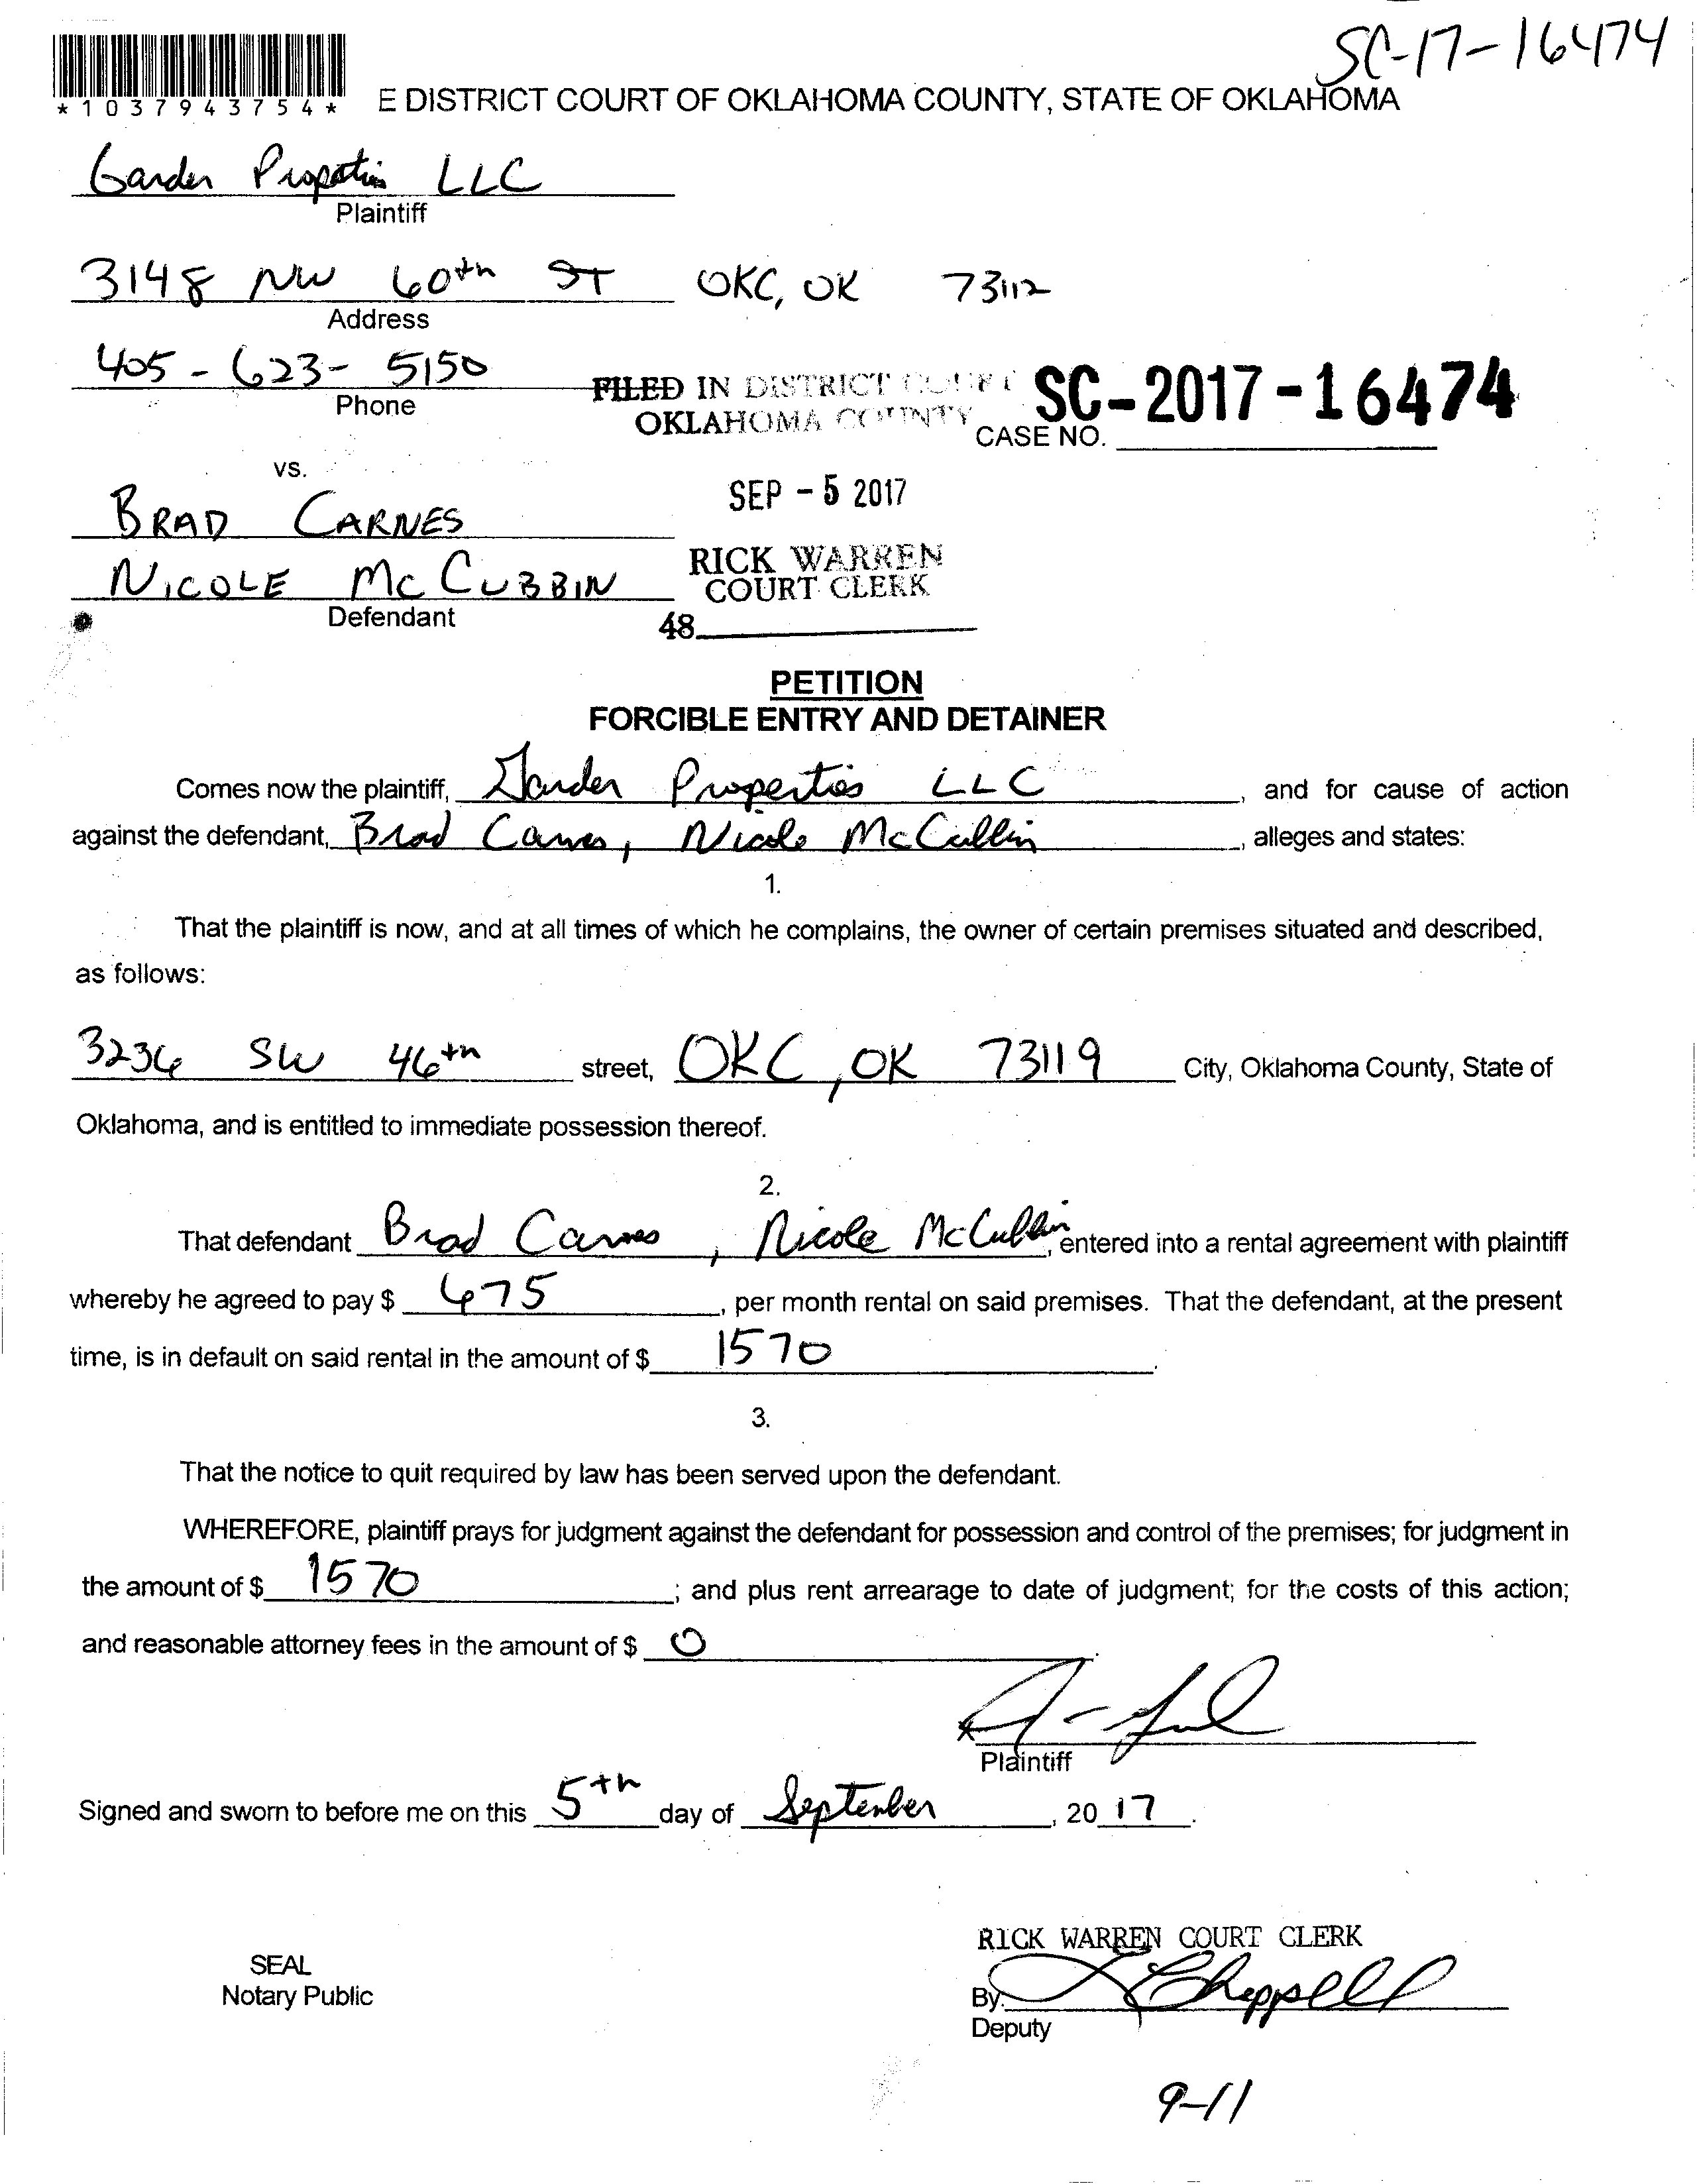 SC-17-16474
*1037943754*
E DISTRICT COURT OF OKLAHOMA COUNTY, STATE OF OKLAHOMA
LLC
Plaintiff
3148 NW 60th ST OKC, OK 73112
Address
405-623-5150
Phone
FILED IN DISTRICT COURT
OKLAHOMA COUNTY
SC-2017-16474
CASE NO.
vs.
SEP - 5 2017
BRAD CARNES
NICOLE MCCUBBIN
Defendant
RICK WARREN
COURT CLERK
48
PETITION
FORCIBLE ENTRY AND DETAINER
Comes now the plaintiff, Properties LLC, and for cause of action
against the defendant, Brad Carnes, Nicole McCubbin, alleges and states:
1.
That the plaintiff is now, and at all times of which he complains, the owner of certain premises situated and described,
as follows:
3236 SW 46th street, OKC, OK 73119 City, Oklahoma County, State of
Oklahoma, and is entitled to immediate possession thereof.
2.
That defendant Brad Carnes, Nicole McCubbin, entered into a rental agreement with plaintiff
whereby he agreed to pay $ 675, per month rental on said premises. That the defendant, at the present
time, is in default on said rental in the amount of $ 1570.
3.
That the notice to quit required by law has been served upon the defendant.
WHEREFORE, plaintiff prays for judgment against the defendant for possession and control of the premises; for judgment in
the amount of $ 1570; and plus rent arrearage to date of judgment; for the costs of this action;
and reasonable attorney fees in the amount of $ 0.
Plaintiff
Signed and sworn to before me on this 5th day of September, 20 17.
RICK WARREN COURT CLERK
SEAL
Notary Public
By:
Deputy
9-11